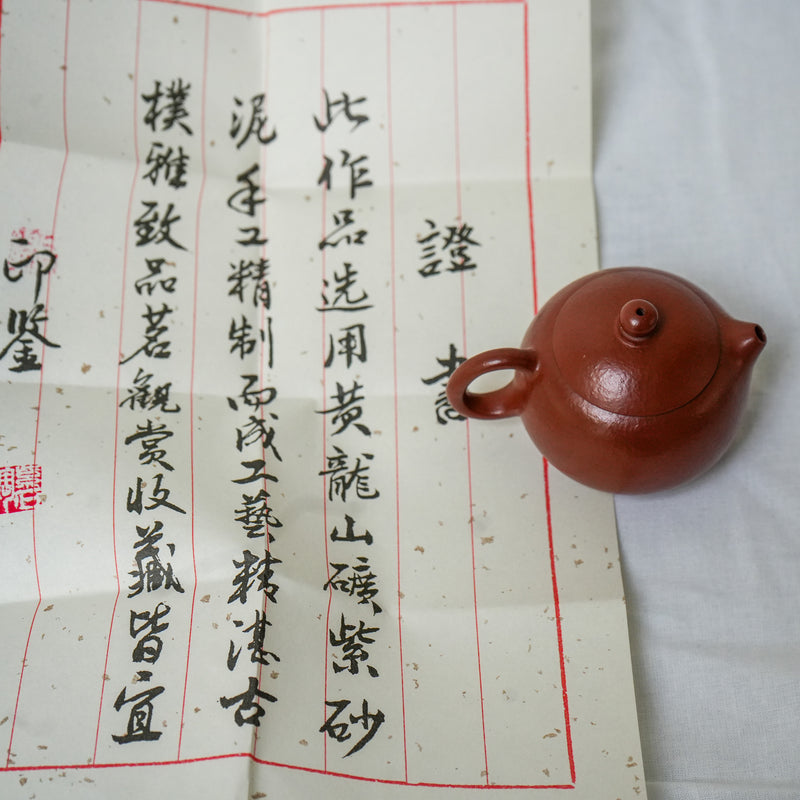 證書
此作品选用黄龍山礦紫砂
泥手工精制而成工藝精湛古
樸雅致品茗觀賞收藏皆宜
印鑒